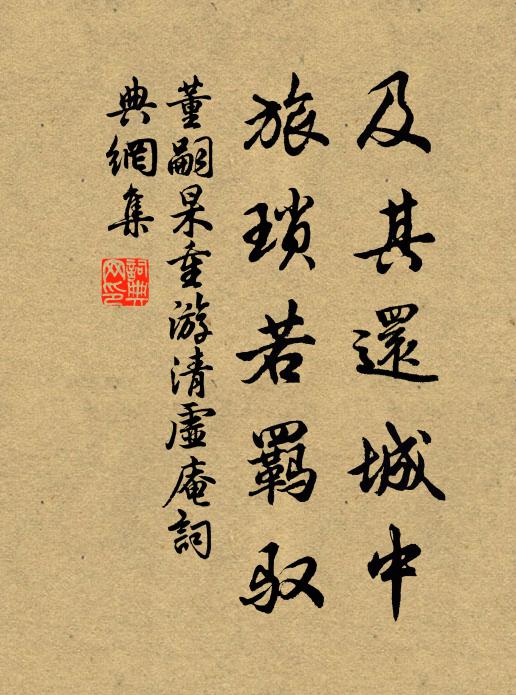 及其還城中
旅瑣若羈馭
董嗣杲重游清虛庵詞
典網集
詞典
网印